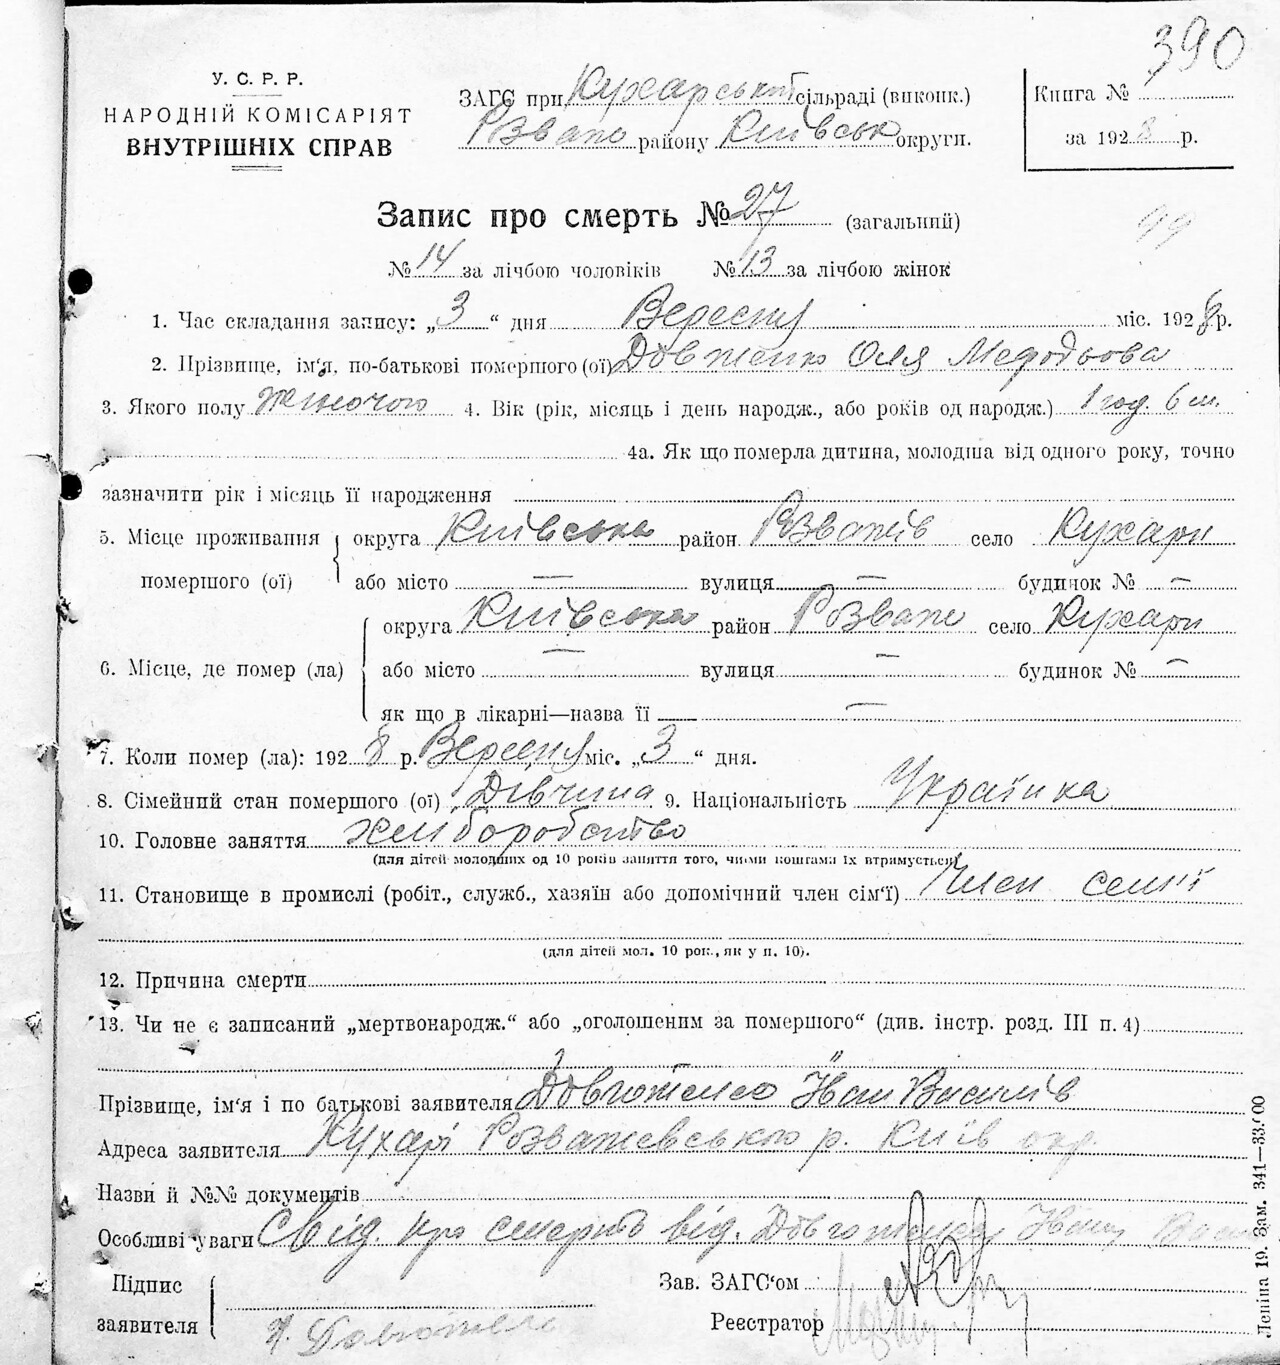 390
У. С. Р. Р.
НАРОДНІЙ КОМІСАРІЯТ
ВНУТРІШНІХ СПРАВ
ЗАГС при Кухарській сільраді (виконк.)
Розваж районy Київськ округи.
Книга №
за 1928 р.
Запис про смерть № 27 (загальний)
99
№ 14 за лічбою чоловіків № 13 за лічбою жінок
1. Час складання запису: „3“ дня Вересня міс. 1928 р.
2. Прізвище, ім'я, по-батькові помершого (ої) Довженко Оля Мефодьова
3. Якого полу жіночого 4. Вік (рік, місяць і день народж., або років од народж.) 1 год. 6 м.
4а. Як що померла дитина, молодша від одного року, точно
зазначити рік і місяць її народження
5. Місце проживання помершого (ої) округа Київська район Розважів село Кухари
або місто — вулиця — будинок № —
6. Місце, де помер (ла) округа Київська район Розваж село Кухари
або місто — вулиця — будинок № —
як що в лікарні—назва її —
7. Коли помер (ла): 1928 р. Вересня міс. „3“ дня.
8. Сімейний стан помершого (ої) Дівчина 9. Національність Українка
10. Головне заняття хліборобство
(для дітей молодших од 10 років заняття того, чиїми коштами їх втримується)
11. Становище в промислі (робіт., служб., хазяїн або допомічний член сім'ї) Член семії
(для дітей мол. 10 рок., як у п. 10).
12. Причина смерти
13. Чи не є записаний „мертвонародж.“ або „оголошеним за помершого“ (див. інстр. розд. III п. 4)
Прізвище, ім'я і по батькові заявителя Довгопола Іван Василів
Адреса заявителя Кухарі Розважевського р. Київ окр.
Назви й №№ документів
Особливі уваги Свід. про смерть від. Івана
Підпис заявителя
Зав. ЗАГС'ом
Реєстратор
Леніна 19. Зам. 341—33.000